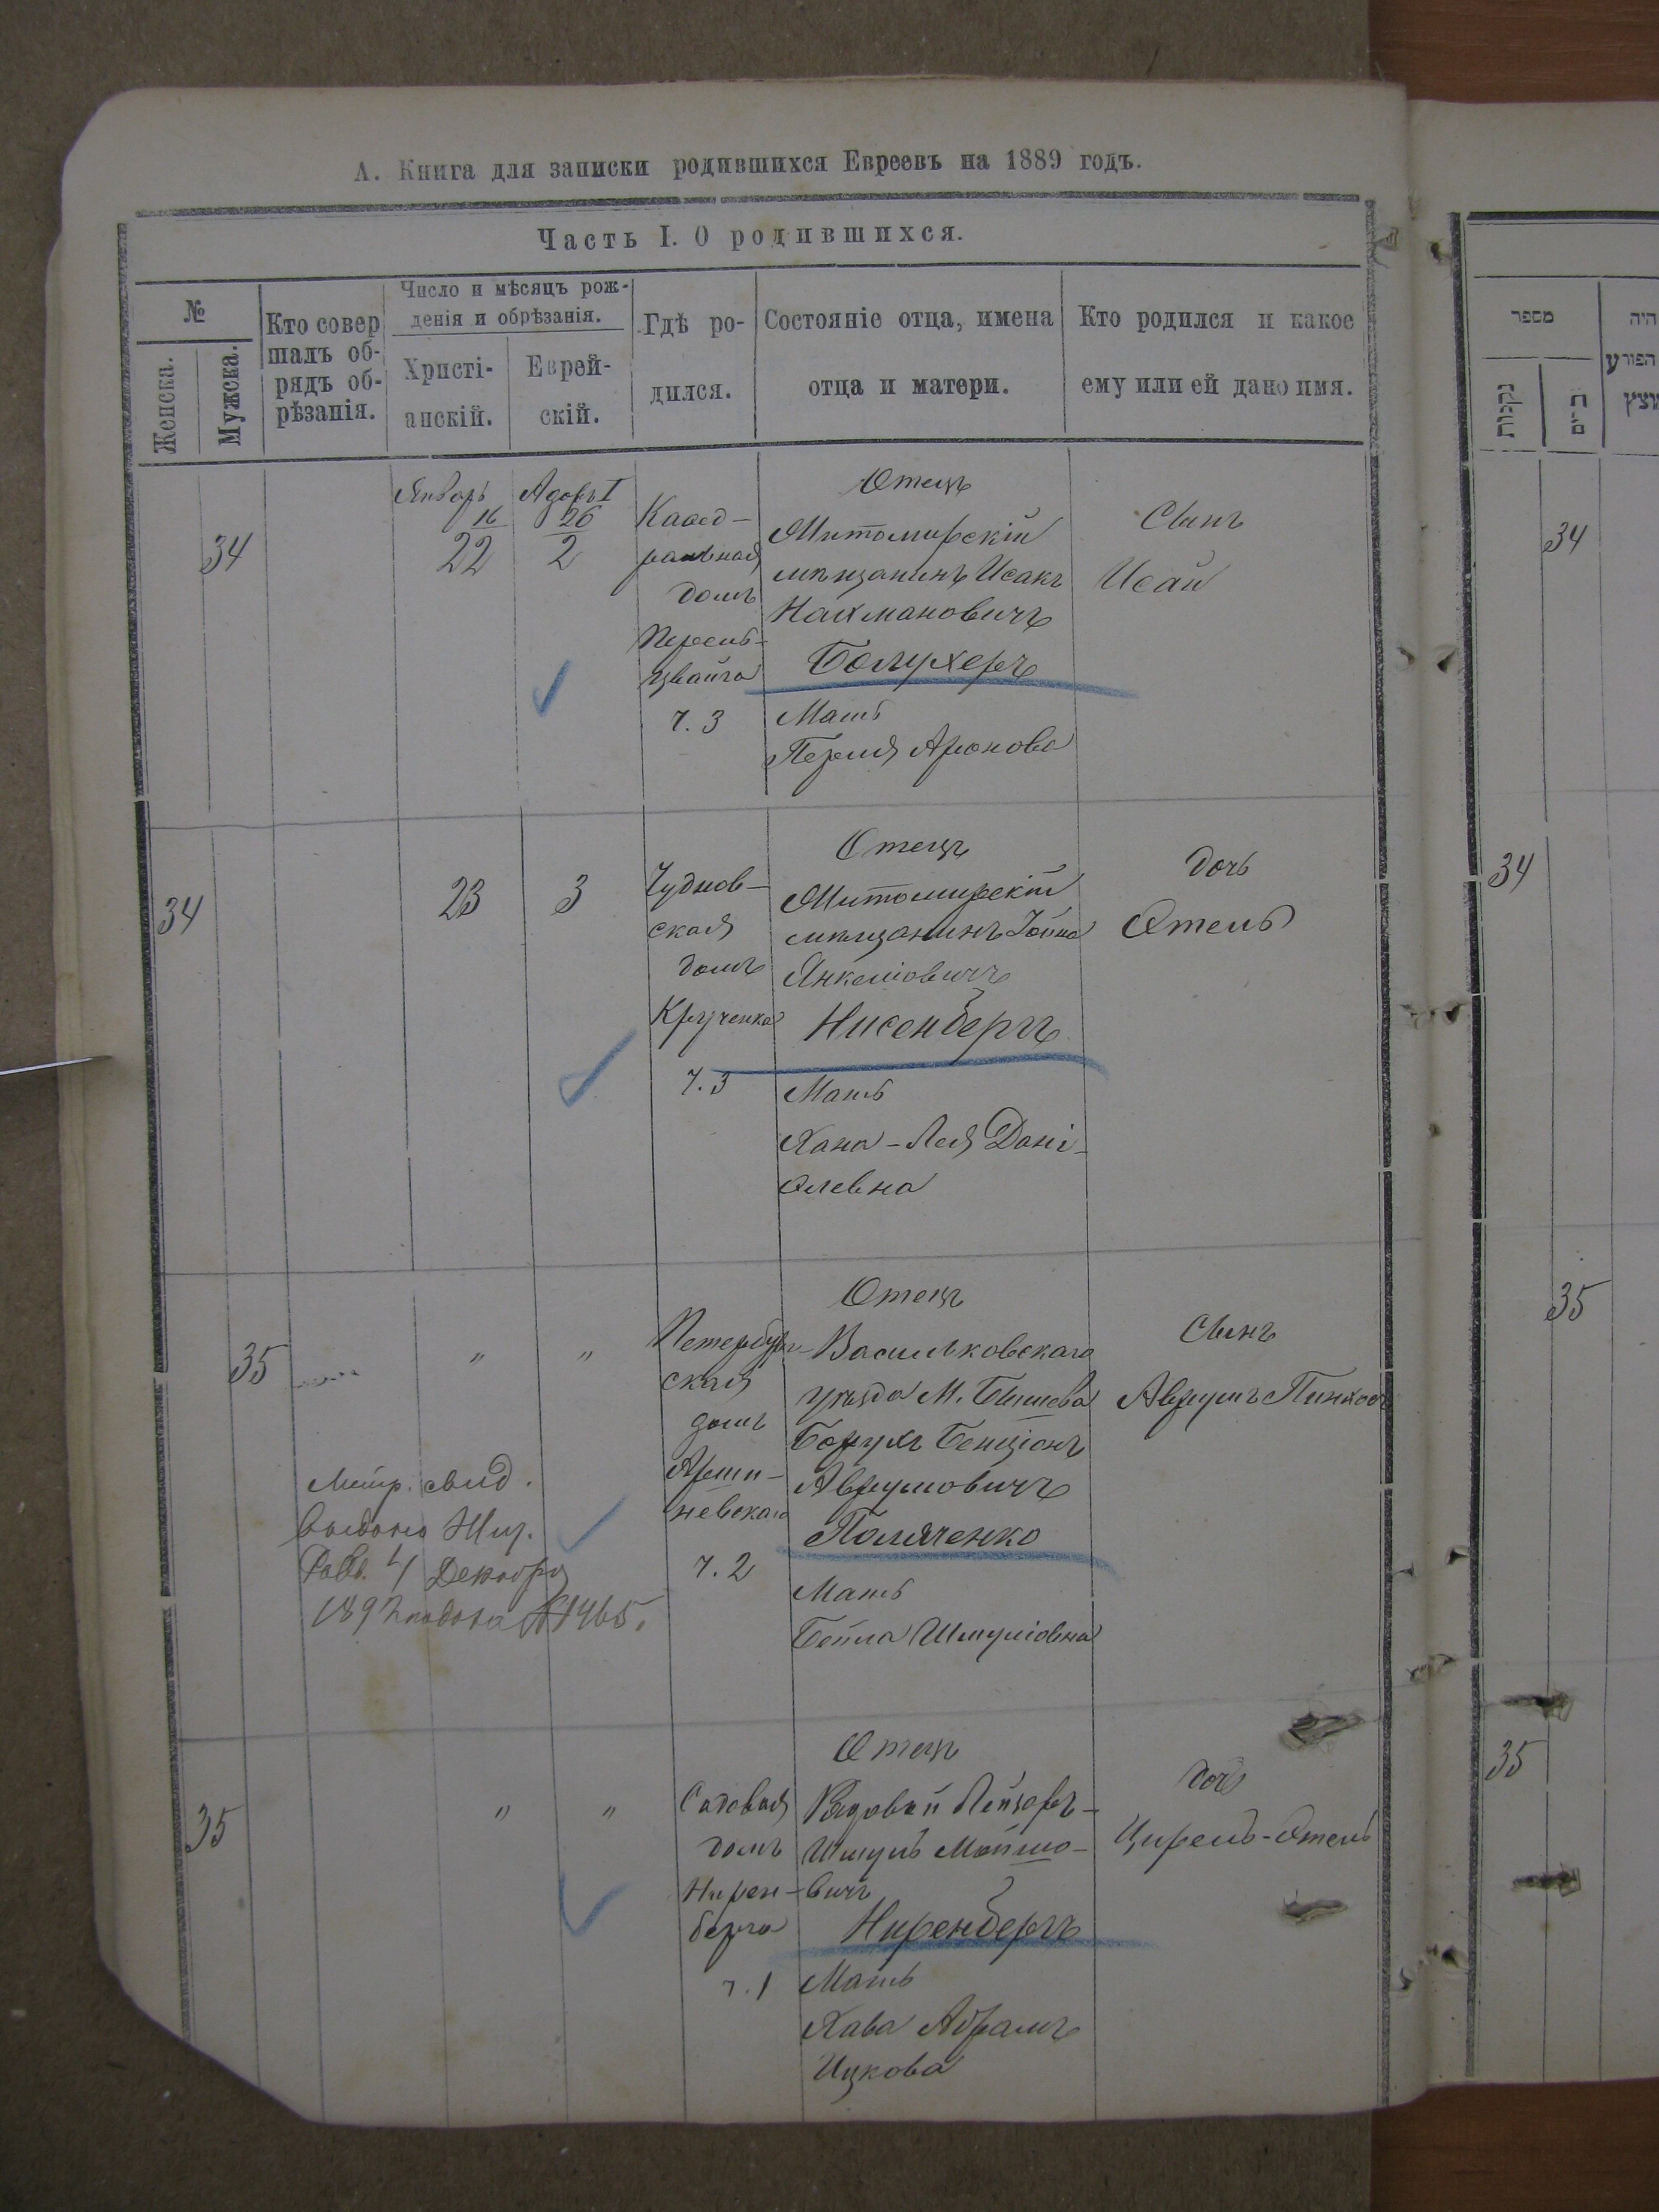 А. Книга для записки родившихся Евреевъ на 1889 годъ.
Часть I. О родившихся.
№
Женска.
Мужска.
Кто совер
шалъ об-
рядъ об-
рѣзанія.
Число и мѣсяцъ рож-
денія и обрѣзанія.
Христі-
анскій.
Еврей-
скій.
Гдѣ ро-
дился.
Состояніе отца, имена
отца и матери.
Кто родился и какое
ему или ей дано имя.
34
Январь
16
22
Адаръ I
26
2
Каѳед-
ральная
домъ
цвайга
ч. 3
Отецъ
Житомирскій
мѣщанинъ Исакъ
Нахмановичъ
Болухеръ
Мать
Перля Аронова
Сынъ
Исай
34
23
3
Чуднов-
ская
домъ
Крученка
ч. 3
Отецъ
Житомирскій
мѣщанинъ Іойна
Янкелiовичъ
Нисенбергъ
Мать
Хана-Лея Дані-
елевна
дочь
Этель
35
"
"
Петербург-
ская
домъ
невскаго
ч. 2
Отецъ
Васильковскаго
уѣзда М.
Борухъ Бенціонъ
Аврумовичъ
Поляченко
Мать
Бейла Шмулiовна
Сынъ
Аврумъ Пинхос
Метр. свид.
выдано Жит.
Равв. 4 Декабря
№ 1465.
35
"
"
Садовая
домъ
Нирен-
берга
ч. 1
Отецъ
Рядовой Лейзоръ-
Шмуль Мошко-
вичъ
Ниренбергъ
Мать
Хава Абрамъ
Ицкова
дочь
Цирель-Этель
מספר
נקבות
זכרים
היה
הפורע
34
34
35
35